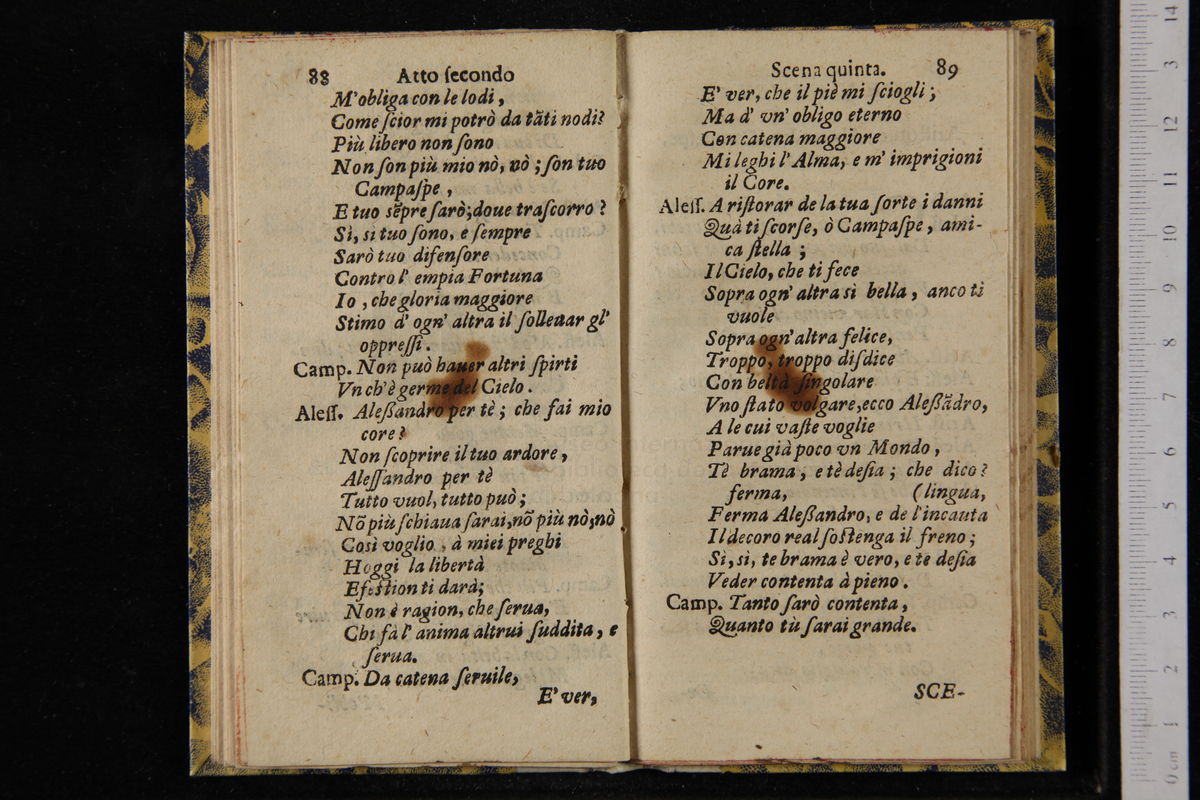 88 Atto ſecondo
M'obliga con le lodi,
Come ſcior mi potrò da tãti nodi?
Più libero non ſono
Non ſon più mio nò, nò; ſon tuo
Campaſpe,
E tuo sẽpre ſarò; doue traſcorro?
Sì, sì tuo ſono, e ſempre
Sarò tuo difenſore
Contro l' empia Fortuna
Io, che gloria maggiore
Stimo d' ogn' altra il ſolleuar gl'
oppreſſi.
Camp. Non può hauer altri ſpirti
Vn ch'è germe del Cielo.
Aleſſ. Aleßandro per tè; che fai mio
core?
Non ſcoprire il tuo ardore,
Aleſſandro per tè
Tutto vuol, tutto può;
Nõ più ſchiaua ſarai, nõ più nò, nò
Così voglio, à miei preghi
Hoggi la libertà
Efeſtion ti darà;
Non è ragion, che ſerua,
Chi fà l' anima altrui ſuddita, e
ſerua.
Camp. Da catena ſeruile,
E' ver,
Scena quinta. 89
E' ver, che il piè mi ſciogli;
Ma d' vn' obligo eterno
Con catena maggiore
Mi leghi l' Alma, e m' imprigioni
il Core.
Aleſſ. A riſtorar de la tua ſorte i danni
Quà ti ſcorſe, ò Campaſpe, ami-
ca ſtella;
Il Cielo, che ti fece
Sopra ogn' altra sì bella, anco ti
vuole
Sopra ogn' altra felice,
Troppo, troppo diſdice
Con beltà ſingolare
Vno ſtato volgare, ecco Aleßãdro,
A le cui vaſte voglie
Parue già poco vn Mondo,
Tè brama, e tè deſia; che dico?
ferma, (lingua,
Ferma Aleßandro, e de l'incauta
Il decoro real ſoſtenga il freno;
Sì, sì, te brama è vero, e te deſia
Veder contenta à pieno.
Camp. Tanto ſarò contenta,
Quanto tù ſarai grande.
SCE-
14
3
12
11
10
9
8
7
6
5
4
3
2
1
0 cm